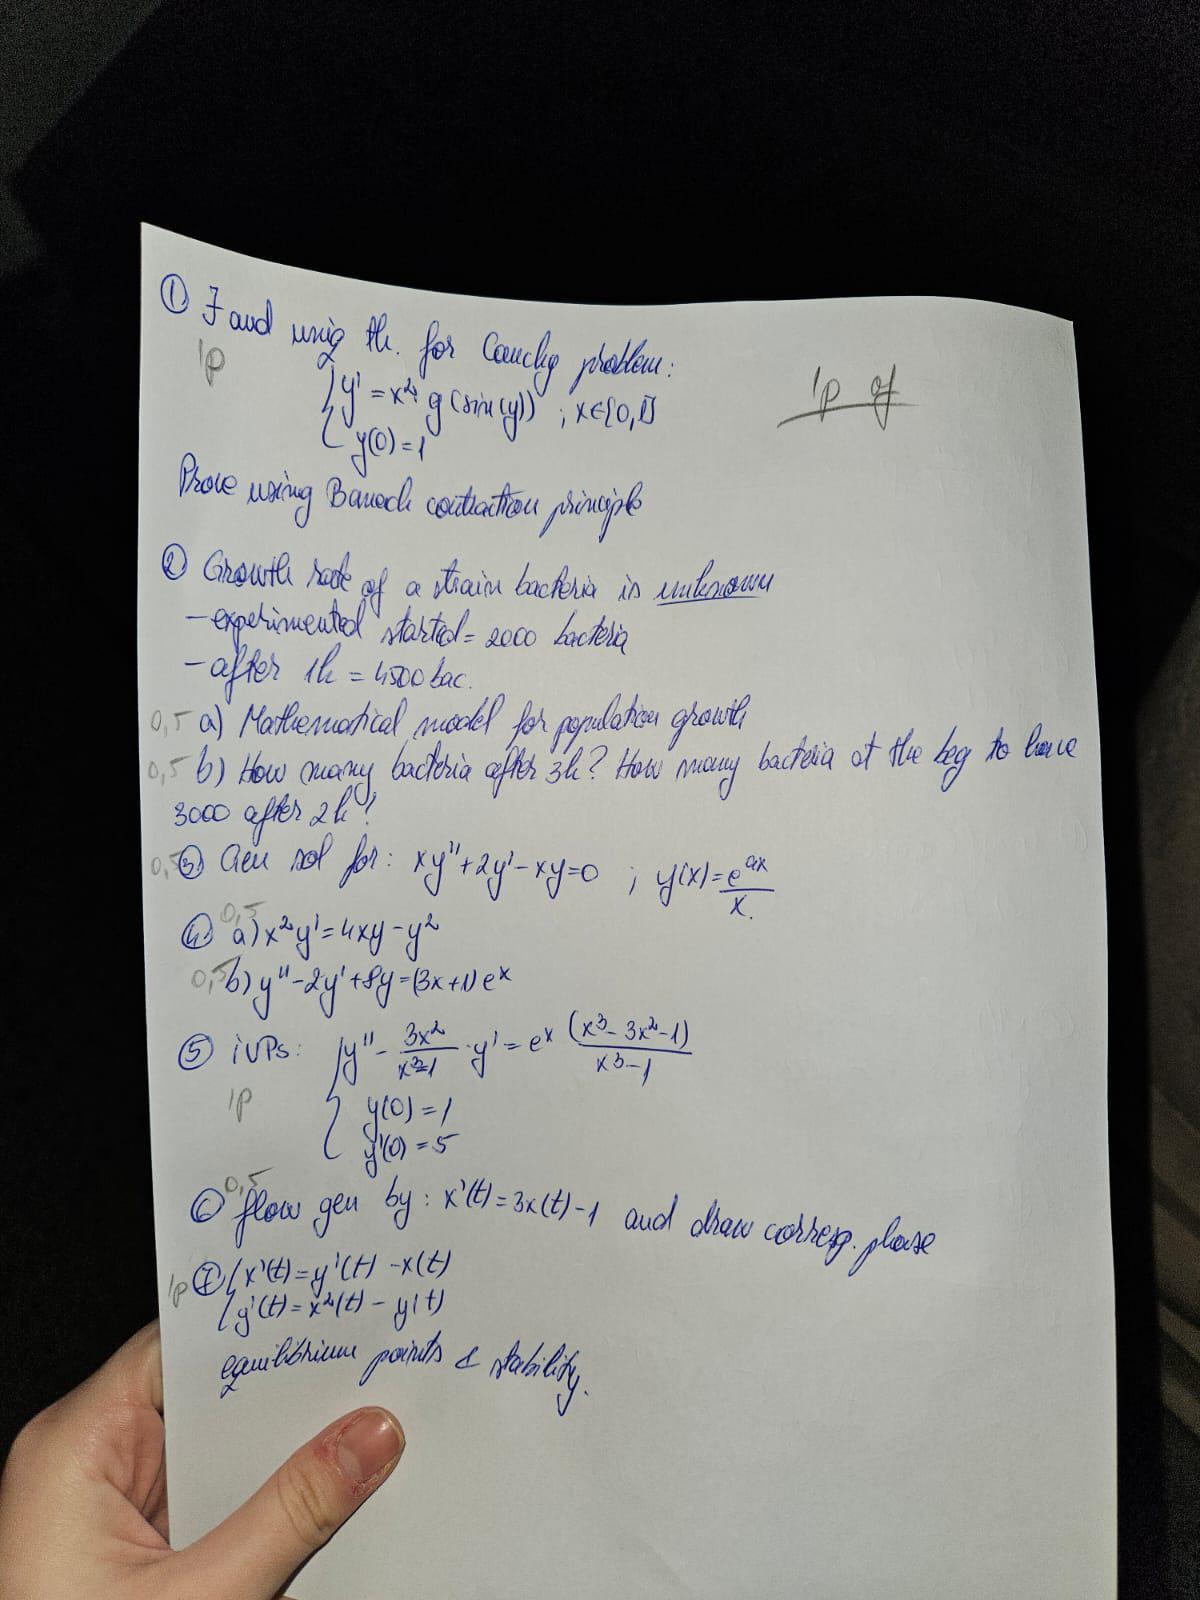 ① ∃ and uniq th. for Cauchy problem:
1p
{ y' = x² · g(sin(y)) ; x∈[0,1]
y(0) = 1
1p of
Prove using Banach contraction principle
② Growth rate of a strain bacteria is unknown
- experimented started = 2000 bacteria
- after 1h = 4500 bac.
0,5 a) Mathematical model for population growth
0,5 b) How many bacteria after 3h? How many bacteria at the beg to have
3000 after 2h?
0,5 ③ Gen sol for: xy''+2y'-xy=0 ; y(x)=e^{ax}/x.
④ 0,5 a) x²y'=4xy-y²
0,5 b) y''-2y'+8y=(3x+1)e^x
⑤ IVPs: { y'' - 3x²/(x³-1) · y' = e^x (x³-3x²-1)/(x³-1)
1p
y(0) = 1
y'(0) = 5
⑥ 0,5 flow gen by: x'(t)=3x(t)-1 and draw corresp. phase
1p ⑦ { x'(t)=y'(t) -x(t)
y'(t)=x²(t) - y(t)
equilibrium points & stability.